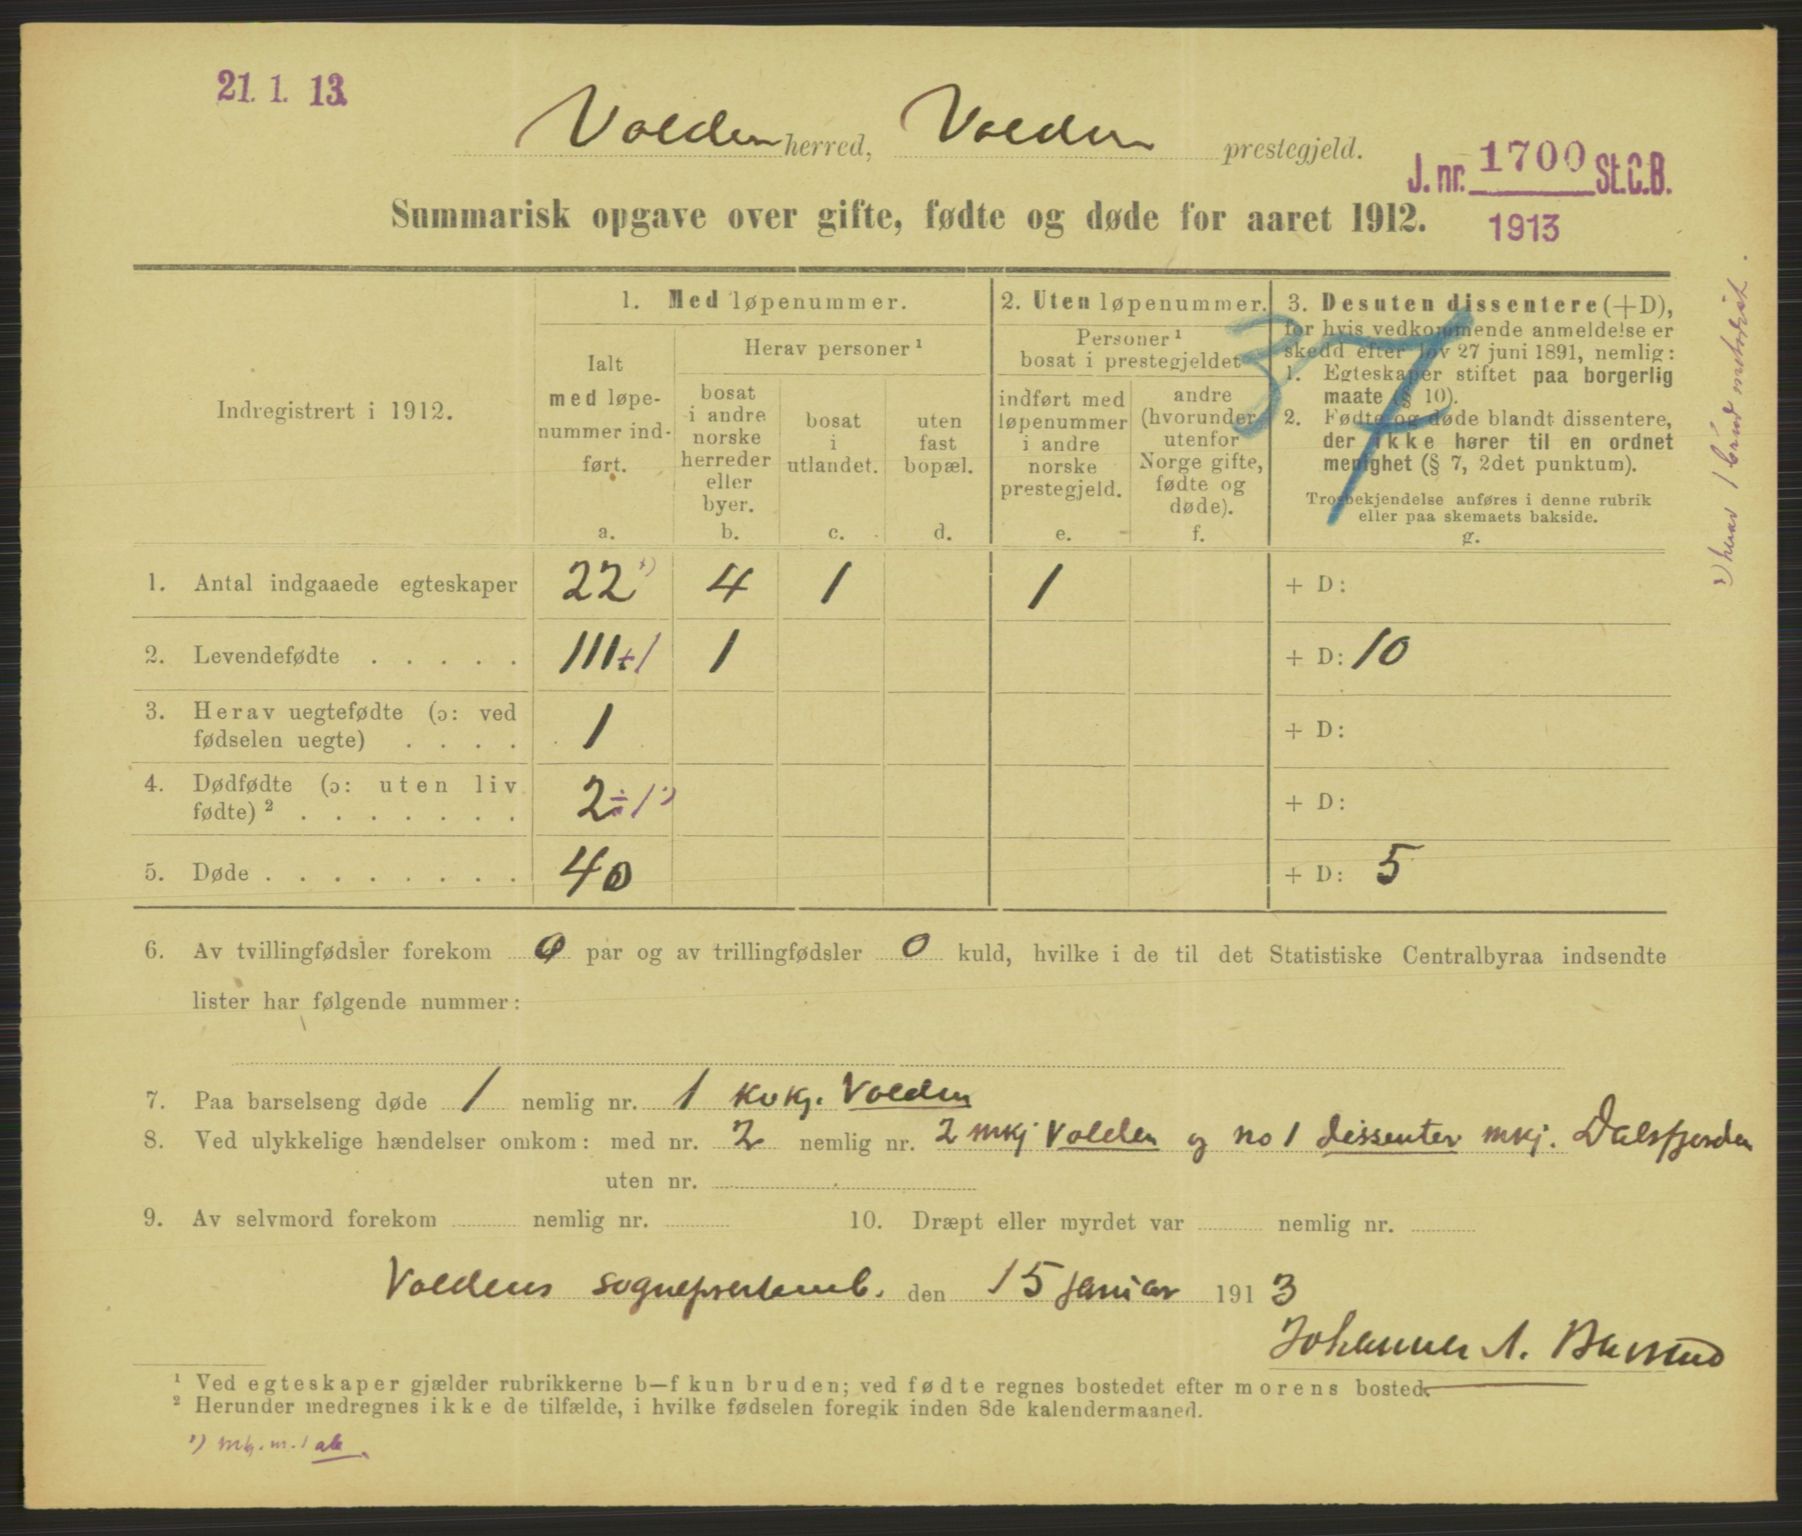 21. 1. 13.
Volden herred, Volden prestegjeld.
J. nr. 1700 St.C.B.
1913
Summarisk opgave over gifte, fødte og døde for aaret 1912.
37
Indregistrert i 1912.
1. Med løpenummer.
Ialt
med løpe-
nummer ind-
ført.
a.
Herav personer ¹
bosat
i andre
norske
herreder
eller
byer.
b.
bosat
i
utlandet.
c.
uten
fast
bopæl.
d.
2. Uten løpenummer.
Personer ¹
bosat i prestegjeldet
indført med
løpenummer
i andre
norske
prestegjeld.
e.
andre
(hvorunder
utenfor
Norge gifte,
fødte og
døde).
f.
3. Desuten dissentere (+D),
for hvis vedkommende anmeldelse er
skedd efter lov 27 juni 1891, nemlig:
1. Egteskaper stiftet paa borgerlig
maate (§ 10).
2. Fødte og døde blandt dissentere,
der ikke hører til en ordnet
menighet (§ 7, 2det punktum).
Trosbekjendelse anføres i denne rubrik
eller paa skemaets bakside.
g.
1. Antal indgaaede egteskaper 22 ¹) 4 1 1 + D:
2. Levendefødte . . . . . 111+1 1 + D: 10
3. Herav uegtefødte (ɔ: ved
fødselen uegte) . . . . 1 + D:
4. Dødfødte (ɔ: uten liv
fødte) ² . . . . . . . 2÷1 ¹) + D:
5. Døde . . . . . . . . 40 + D: 5
6. Av tvillingfødsler forekom 0 par og av trillingfødsler 0 kuld, hvilke i de til det Statistiske Centralbyraa indsendte
lister har følgende nummer:
7. Paa barselseng døde 1 nemlig nr. 1 kvkj. Volden
8. Ved ulykkelige hændelser omkom: med nr. 2 nemlig nr. 2 mkj Volden og no 1 dissenter mkj. Dalsfjorden
uten nr.
9. Av selvmord forekom nemlig nr. 10. Dræpt eller myrdet var nemlig nr.
Voldens sogneprestemb. den 15 januar 1913
Johannes A.
¹ Ved egteskaper gjælder rubrikkerne b—f kun bruden; ved fødte regnes bostedet efter morens bosted.
² Herunder medregnes ikke de tilfælde, i hvilke fødselen foregik inden 8de kalendermaaned.
¹)